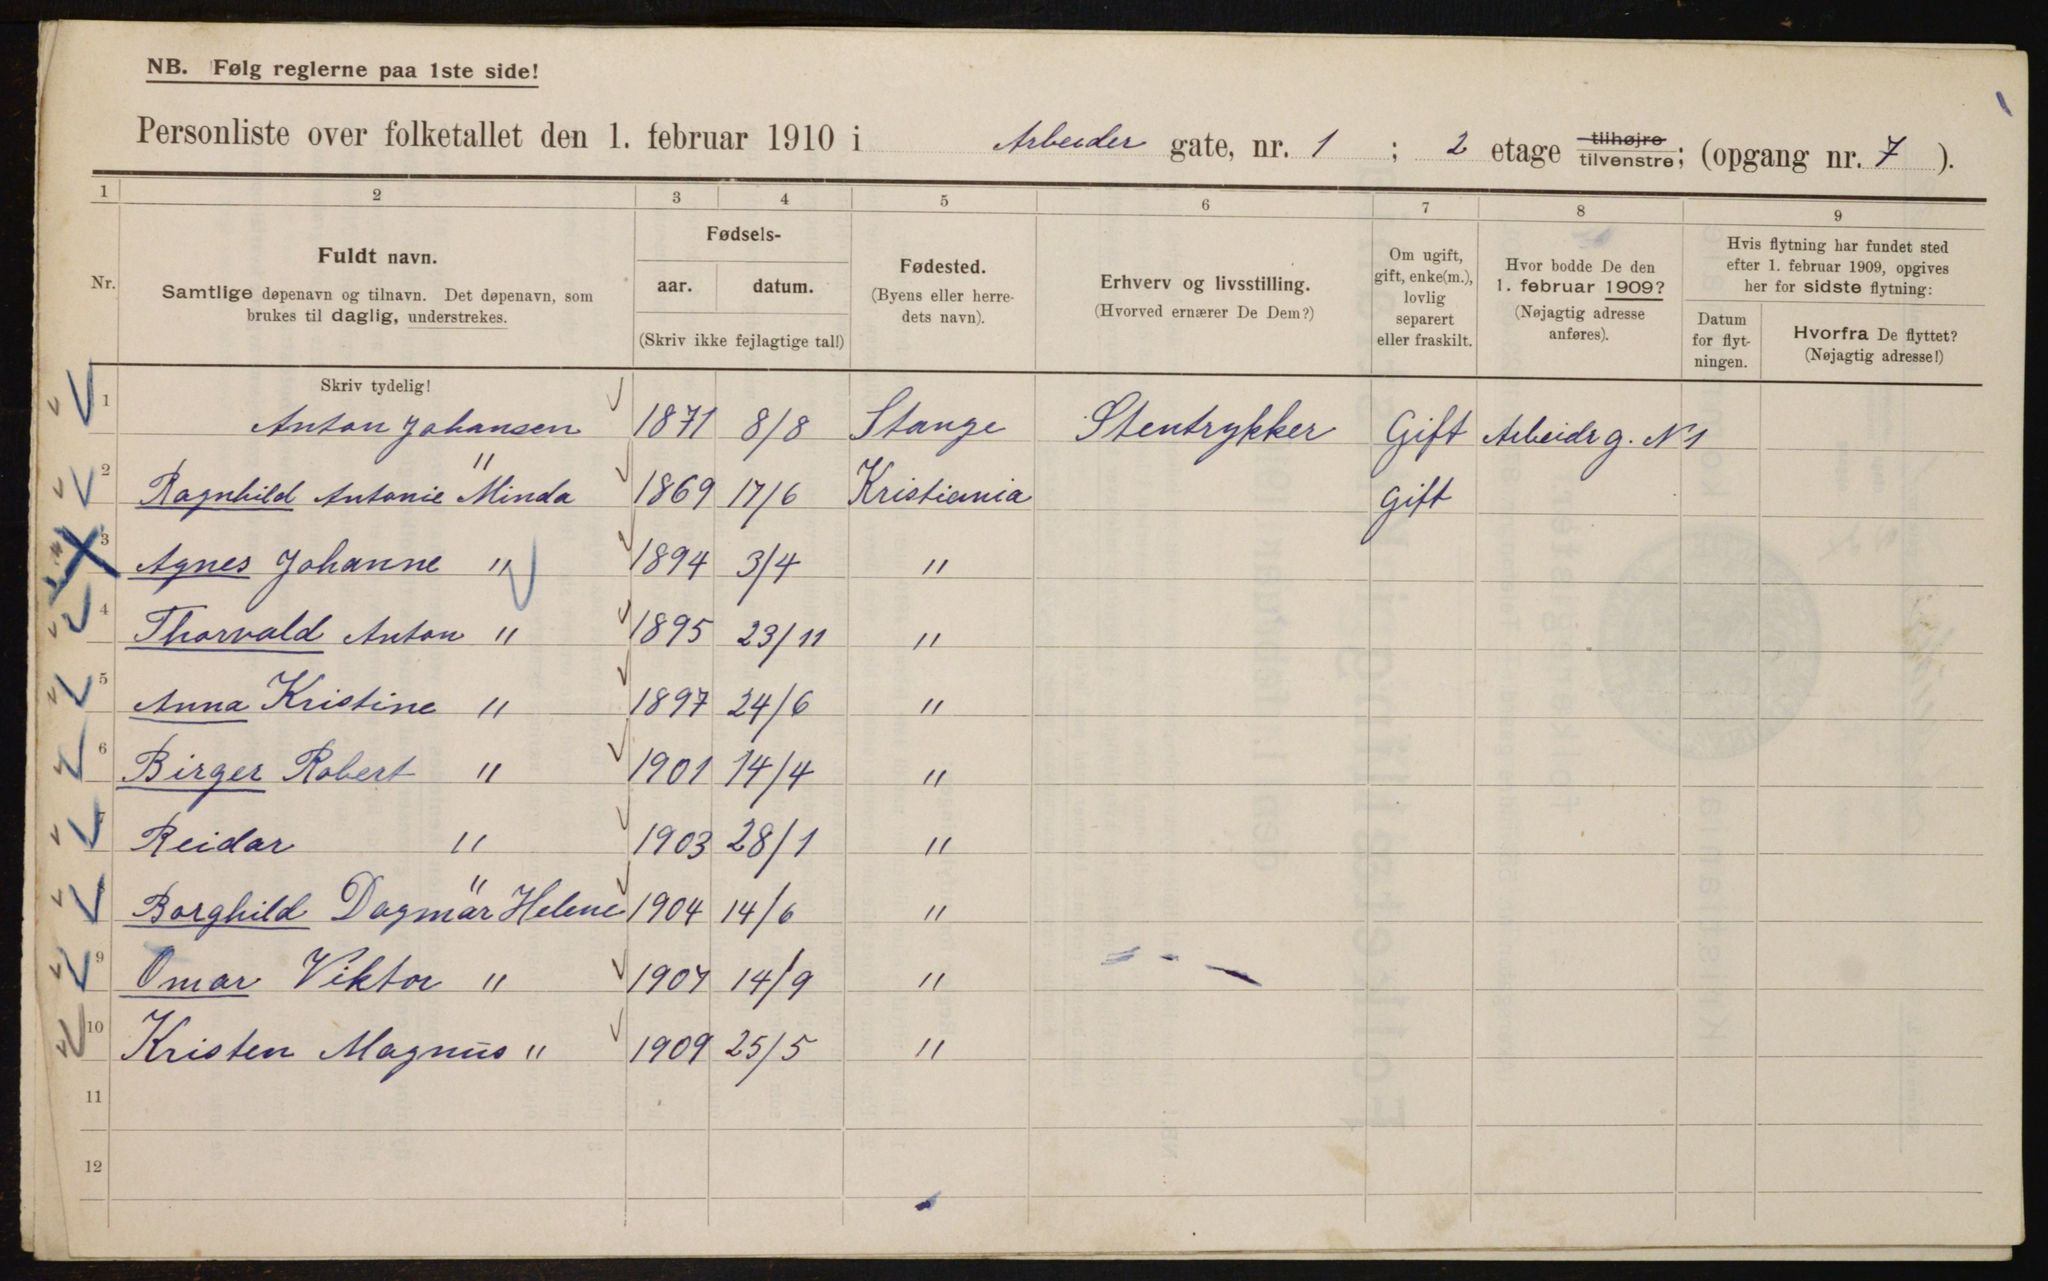 NB. Følg reglerne paa 1ste side!
Personliste over folketallet den 1. februar 1910 i Arbeider gate, nr. 1 ; 2 etage tilhøjre tilvenstre; (opgang nr. 7 ).
1 2 3 4 5 6 7 8 9
Nr.
Fuldt navn.
Samtlige døpenavn og tilnavn. Det døpenavn, som
brukes til daglig, understrekes.
Skriv tydelig!
Fødsels-
aar. datum.
(Skriv ikke fejlagtige tal!)
Fødested.
(Byens eller herre-
dets navn).
Erhverv og livsstilling.
(Hvorved ernærer De Dem?)
Om ugift,
gift, enke(m.),
lovlig
separert
eller fraskilt.
Hvor bodde De den
1. februar 1909?
(Nøjagtig adresse
anføres).
Hvis flytning har fundet sted
efter 1. februar 1909, opgives
her for sidste flytning:
Datum
for flyt-
ningen.
Hvorfra De flyttet?
(Nøjagtig adresse!)
1 Anton Johansen 1871 8/8 Stange Stentrykker Gift Arbeidr g. N 1
2 Ragnhild Antonie " Minda 1869 17/6 Kristiania Gift
3 Agnes Johanne " 1894 3/4 "
4 Thorvald Anton " 1895 23/11 "
5 Anna Kristine " 1897 24/6 "
6 Birger Robert " 1901 14/4 "
7 Reidar " 1903 28/1 "
8 Borghild Dagmar " Helene 1904 14/6 "
9 Omar Viktor " 1907 14/9 "
10 Kristen Magnus " 1909 25/5 "
11
12